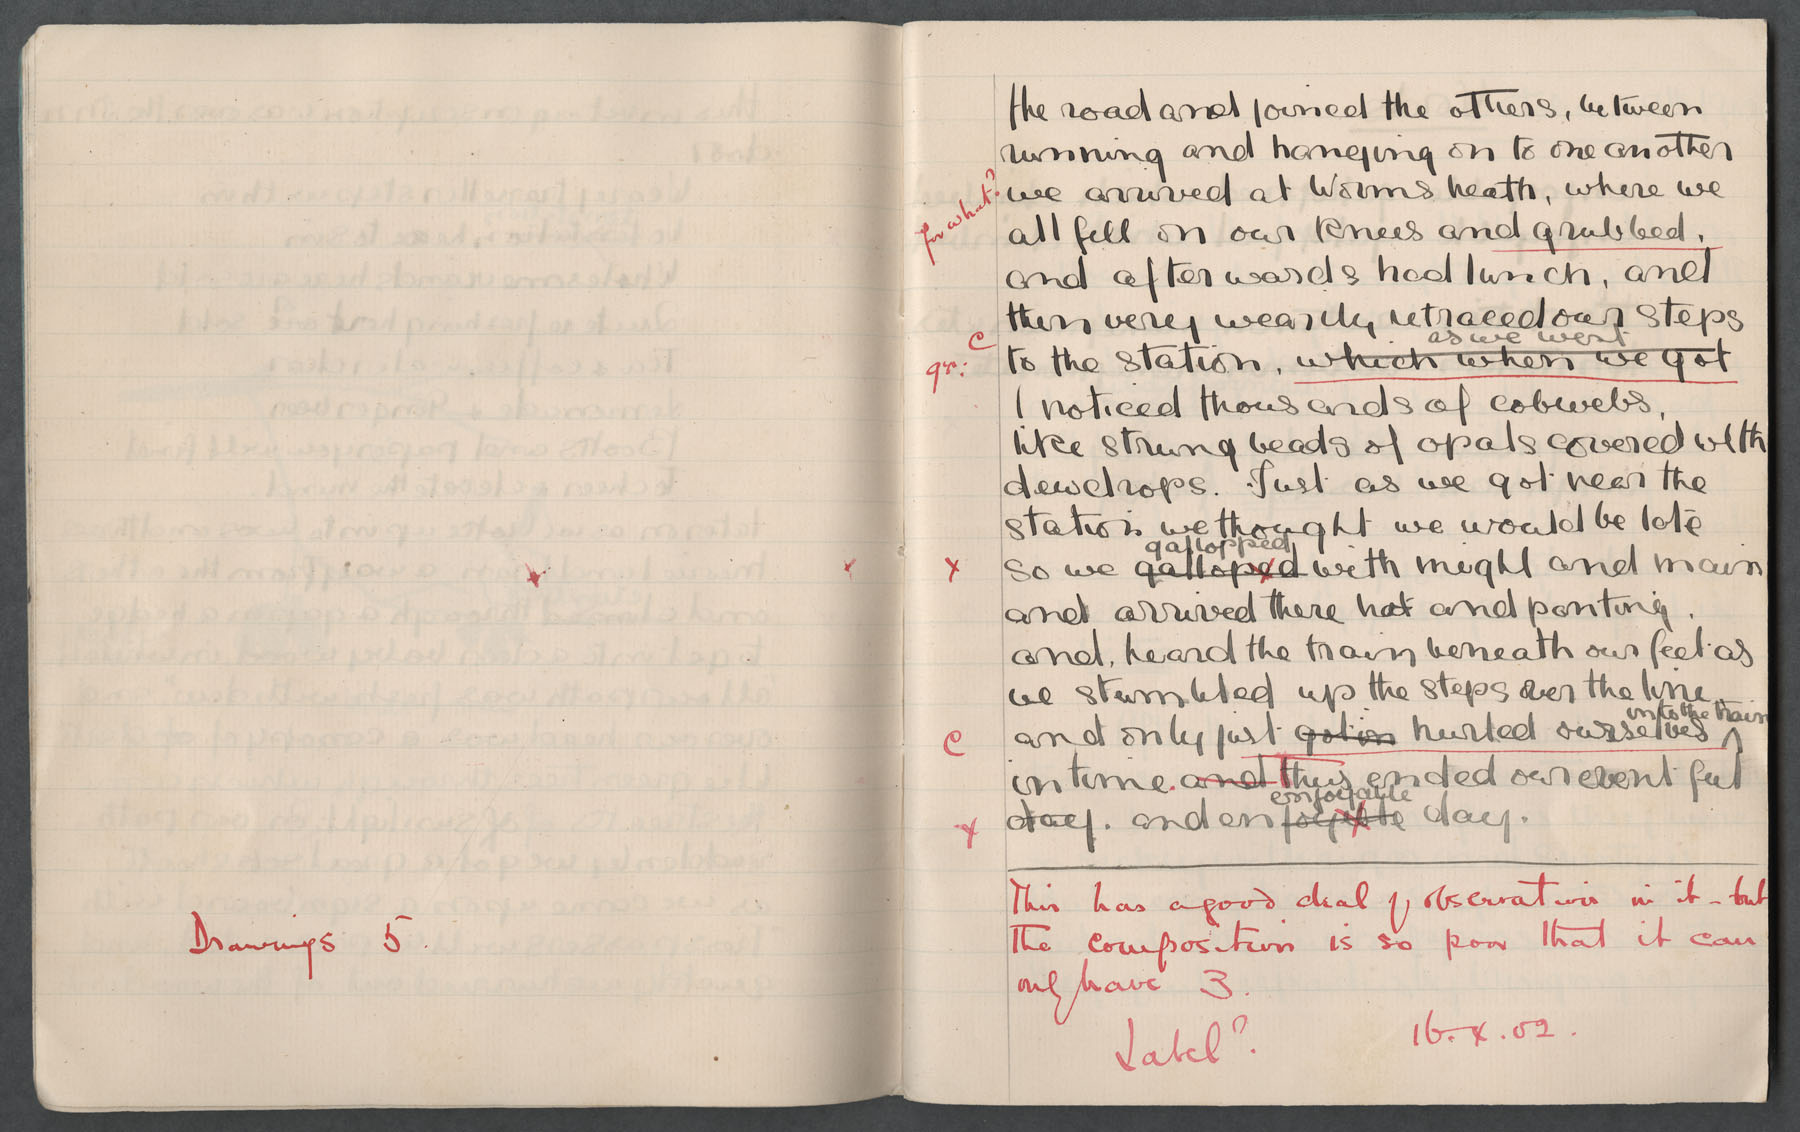 Drawings 5.
the road and joined the others, between
running and hanging on to one another
for what?
we arrived at Worms heath, where we
all fell on our knees and grubbed,
and afterwards had lunch, and
then very wearily retraced our steps
c
as we went
gr:
to the station, which when we got
I noticed thousands of cobwebs,
like strung beads of opals covered with
dewdrops. Just as we got near the
station we thought we would be late
gallopped
x
so we galloped with might and main
and arrived there hot and panting,
and, heard the train beneath our feet as
we stumbled up the steps over the line,
into the train
c
and only just got in hurled ourselves ^
in time. and thus ended our eventful
enjoyable
x
day. and en day.
This has a good deal of observation in it - but
the composition is so poor that it can
only have 3.
Label?
16.x.02.